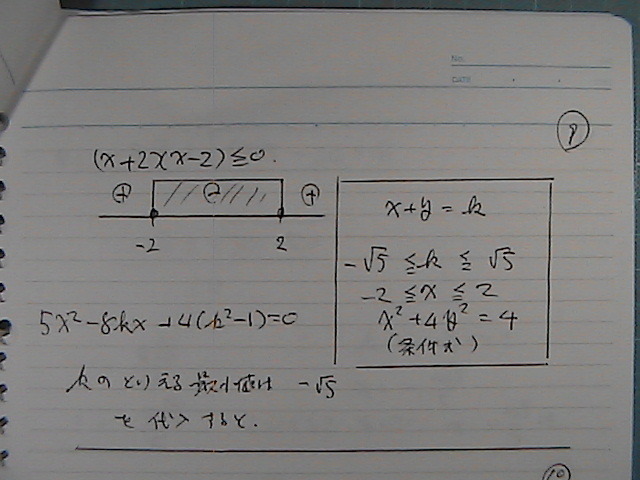 No.
DATE
9
(x+2)(x-2)≦0.
⊕ ⊖ ⊕
-2 2
x+y=k
-√5≦k≦√5
-2≦x≦2
x²+4y²=4
(条件式)
5x²-8kx+4(k²-1)=0
kのとりえる最小値は -√5
を代入すると.
10